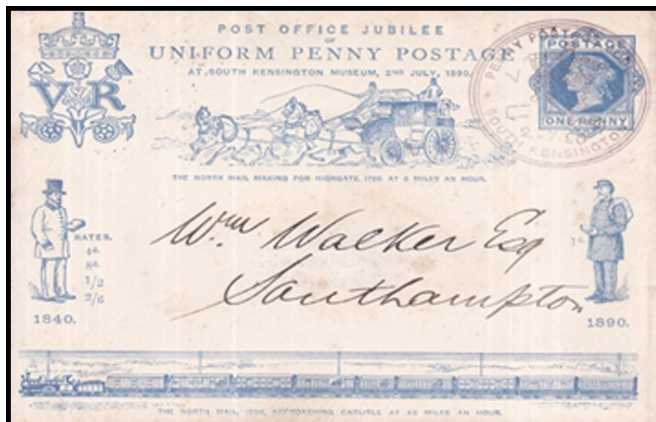 POST OFFICE JUBILEE
OF
UNIFORM PENNY POSTAGE
AT SOUTH KENSINGTON MUSEUM, 2ND JULY, 1890.
V R
POSTAGE
ONE PENNY
PENNY POST
SOUTH KENSINGTON
THE NORTH MAIL MAKING FOR HIGHGATE, 1790, AT 8 MILES AN HOUR.
RATES.
4d.
8d.
1/2
2/6
1d.
Wm Walker Esq
Southampton
1840.
1890.
THE NORTH MAIL, 1890, APPROACHING CARLISLE AT 48 MILES AN HOUR.